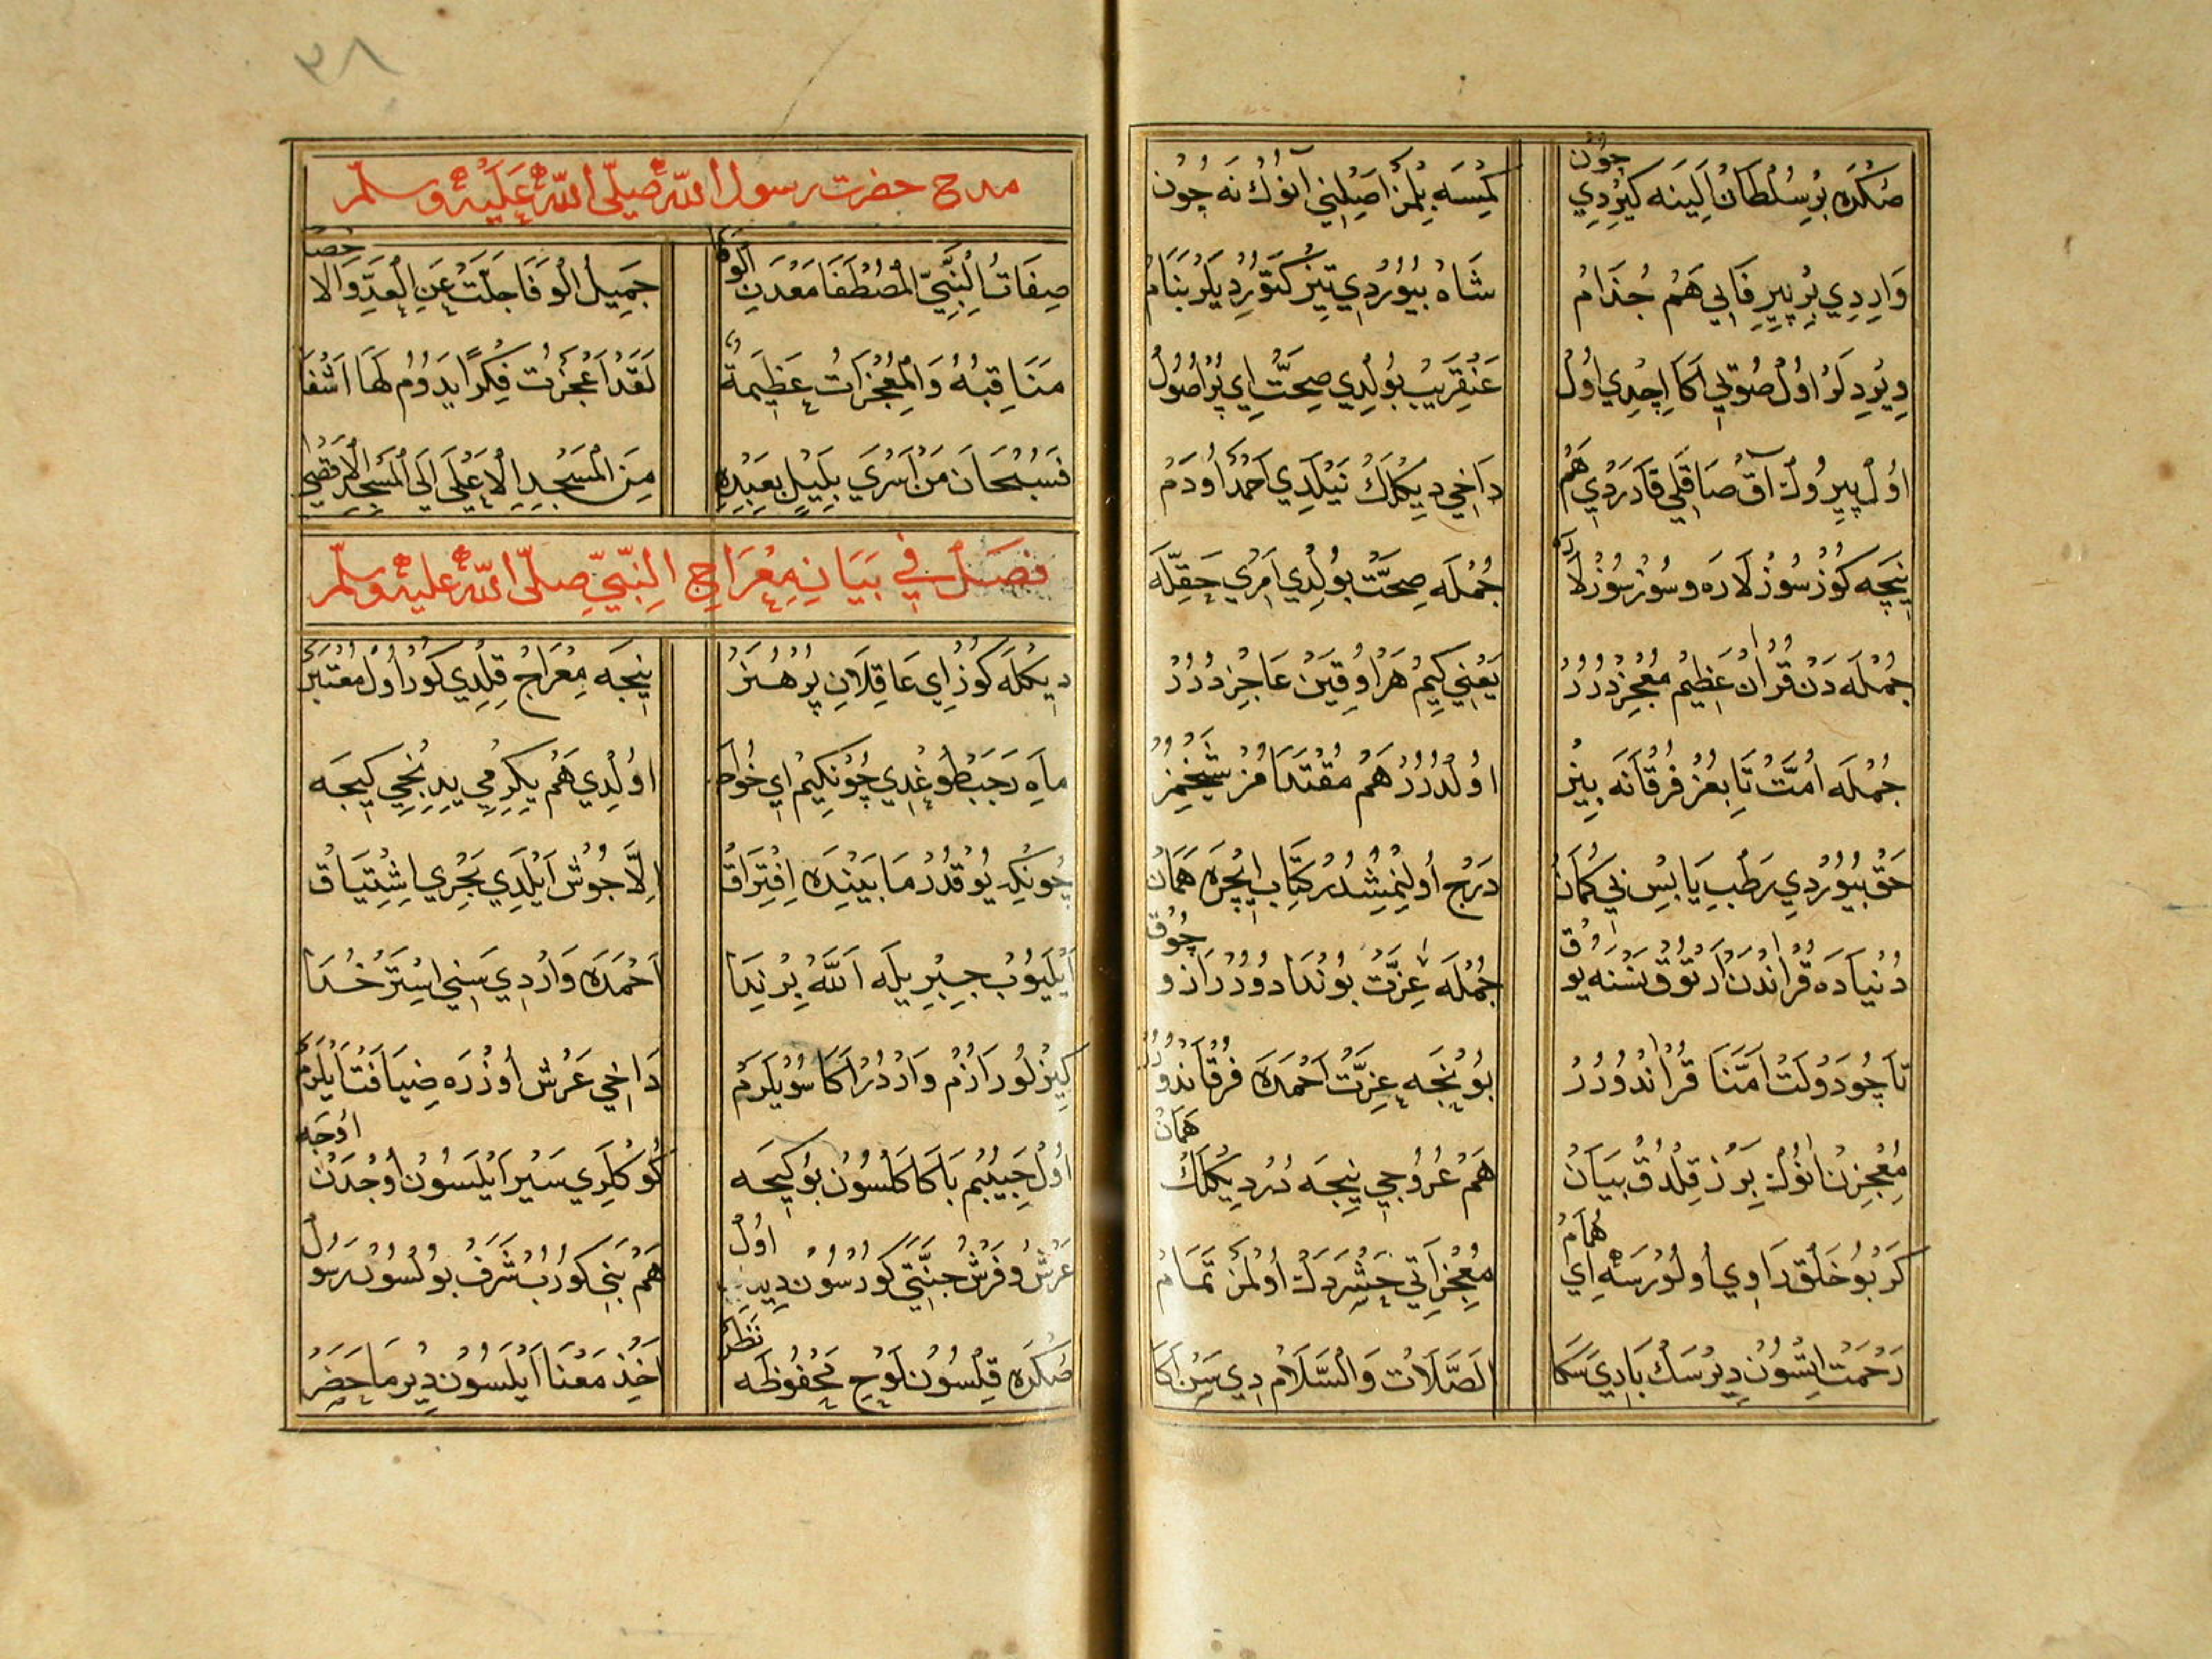 صُكْرَه بِرْ سُلْطَانْ اَلِينَه كِيرْدِي چُونْ
كِمْسَه بِلْمَزْ اَصْلِنِي اَنُوكْ نَه چُونْ
وَارِدِي بِرْ پِيرِ فَانِي هَمْ جُذَامْ
شَاهْ بُيُورْدِي تِيزْ كَتُورْدِيلَرْ بَنَامْ
وِيرْدِلَرْ اُولْ صُويِي اَكَا اِچْدِي اُولْ
عَنْقَرِيبْ بُولْدِي صِحَّتْ اِي پُرْ اُصُولْ
اُولْ پِيرُوكْ آقْ صَاقَلِي قَارَرْدِي هَمْ
دَاخِي دِيكْلَكْ نَيْلَدِي اَحْمَدْ اُودَمْ
نِيجَه كَوزْسُوزْلَارَه وسُوزْسُوزْلَارَه
جُمْلَه صِحَّتْ بُولْدِي اَمْرِي حَقِّلَه
جُمْلَه دَنْ قُرْاٰنْ عَظِيمْ مُعْجِزْدُرُرْ
يَعْنِي كِيمْ هَرْ اُوقِيَنْ عَاجِزْدُرُرْ
جُمْلَه اُمَّتْ تَابِعُزْ فُرْقَانَه بِيزْ
اُولْدُرُرْ هَمْ مُقْتَدَامُزْ شَيْخِمِزْ
حَقْ بُيُورْدِي رَطْبِ يَابِسْ بِي كُمَانْ
دَرْجْ اُولِنْمِشْدُرْ كِتَابِ اِيچْرَه هَمَانْ
دُنْيَادَه قُرْاٰنْدَنْ اَرْتُوقْ نَسْنَه يُوقْ
جُمْلَه عِزَّتْ بُونْدَادُورُرْ اَزُو چُوقْ
تَاجُو دَوْلَتْ اُمَّتَنَا قُرْاٰنْدُورُرْ
بُونْجَه عِزَّتْ اَحْمَدَه فُرْقَانْدُورُرْ
مُعْجِزِنْ اَنُوكْ بِرَزْ قِلْدُقْ بَيَانْ
هَمْ عُرُوجِي نِيجَه دُرْ دِيكْلَكْ هَمَانْ
كَرْ بُو خَلْقْ رَاوِي اُولُورْسَه اَي هُمَامْ
مُعْجِزَاتِي حَشْرَدَكْ اُولْمَزْ تَمَامْ
رَحْمَتْ اِتْسُونْ دِيرْسَكْ بَارِي سَكَا
الصَّلَاتُ وَالسَّلَامْ دِي سَنْ اَكَا
مدح حضرت رسول الله صلّى الله عَلَيْهِ وسلّم
صِفَاتُ النَّبِيِّ الْمُصْطَفَا مَعْدَنِ الْوَفَا
جَمِيلُ الْوَفَا جَلَّتْ عَنِ الْعَدِّ وَالْاحْصَا
مَنَاقِبُهُ وَالْمُعْجِزَاتُ عَظِيمَةٌ
لَقَدْ اَعْجَزَتْ فِكْرًا يَدُومُ لَهَا اَشْفَا
فَسُبْحَانَ مَنْ اَسْرَي بِلَيْلٍ بِعَبْدِهِ
مِنَ الْمَسْجِدِ الْاَعْلَى اِلَي الْمَسْجِدِ الْاَقْصَي
فصل في بَيَانِ مِعْرَاجِ النَّبِيِّ صلّى الله عليه وسلّم
دِيكْلَه كُوزْ اِي عَاقِلَانِ پُرْ هُنَرْ
نِيجَه مِعْرَاجْ قِلْدِي كُورْ اُولْ مُعْتَبَرْ
مَاهِ رَجَبْ طُوغْدِي چُونْكِيمْ اِي خُواجَه
اُولْدِي هَمْ يِكِرْمِي يِدِنْجِي كِيجَه
چُونْكِه يُوقْدُرْ مَابَيْنِنْدَه اِفْتِرَاقْ
اِلَّا جُوشْ اَيْلَدِي بَحْرِي اِشْتِيَاقْ
اَيْلَيُوبْ جِبْرِيلَه اَللّٰهْ بِرْ نِدَا
اَحْمَدَه وَارْدِي سَنِي اِسْتَرْ خُدَا
كِيزْلُو رَازُمْ وَارْدُرْ اَكَا سُوْيلَرَمْ
دَاخِي عَرْشْ اُوزْرَه ضِيَافَتْ اَيْلَرَمْ
اُولْ حَبِيبُمْ بَاكَا كَلْسُونْ بُو كِيجَه
كُوكْلَرِي سَيْرْ اَيْلَسُونْ اُوجْدَنْ اُوجَه
عَرْشُ وفَرْشُ جَنَّتِي كُورْسُونْ اُولْ
هَمْ بَنِي كُورُبْ شَرَفْ بُولْسُونْ رَسُولْ
صُكْرَه قِلْسُونْ لَوْحِ مَحْفُوظَه نَظَرْ
اَخْذِ مَعْنَا اَيْلَسُونْ دِيرْ مَاحَضَرْ